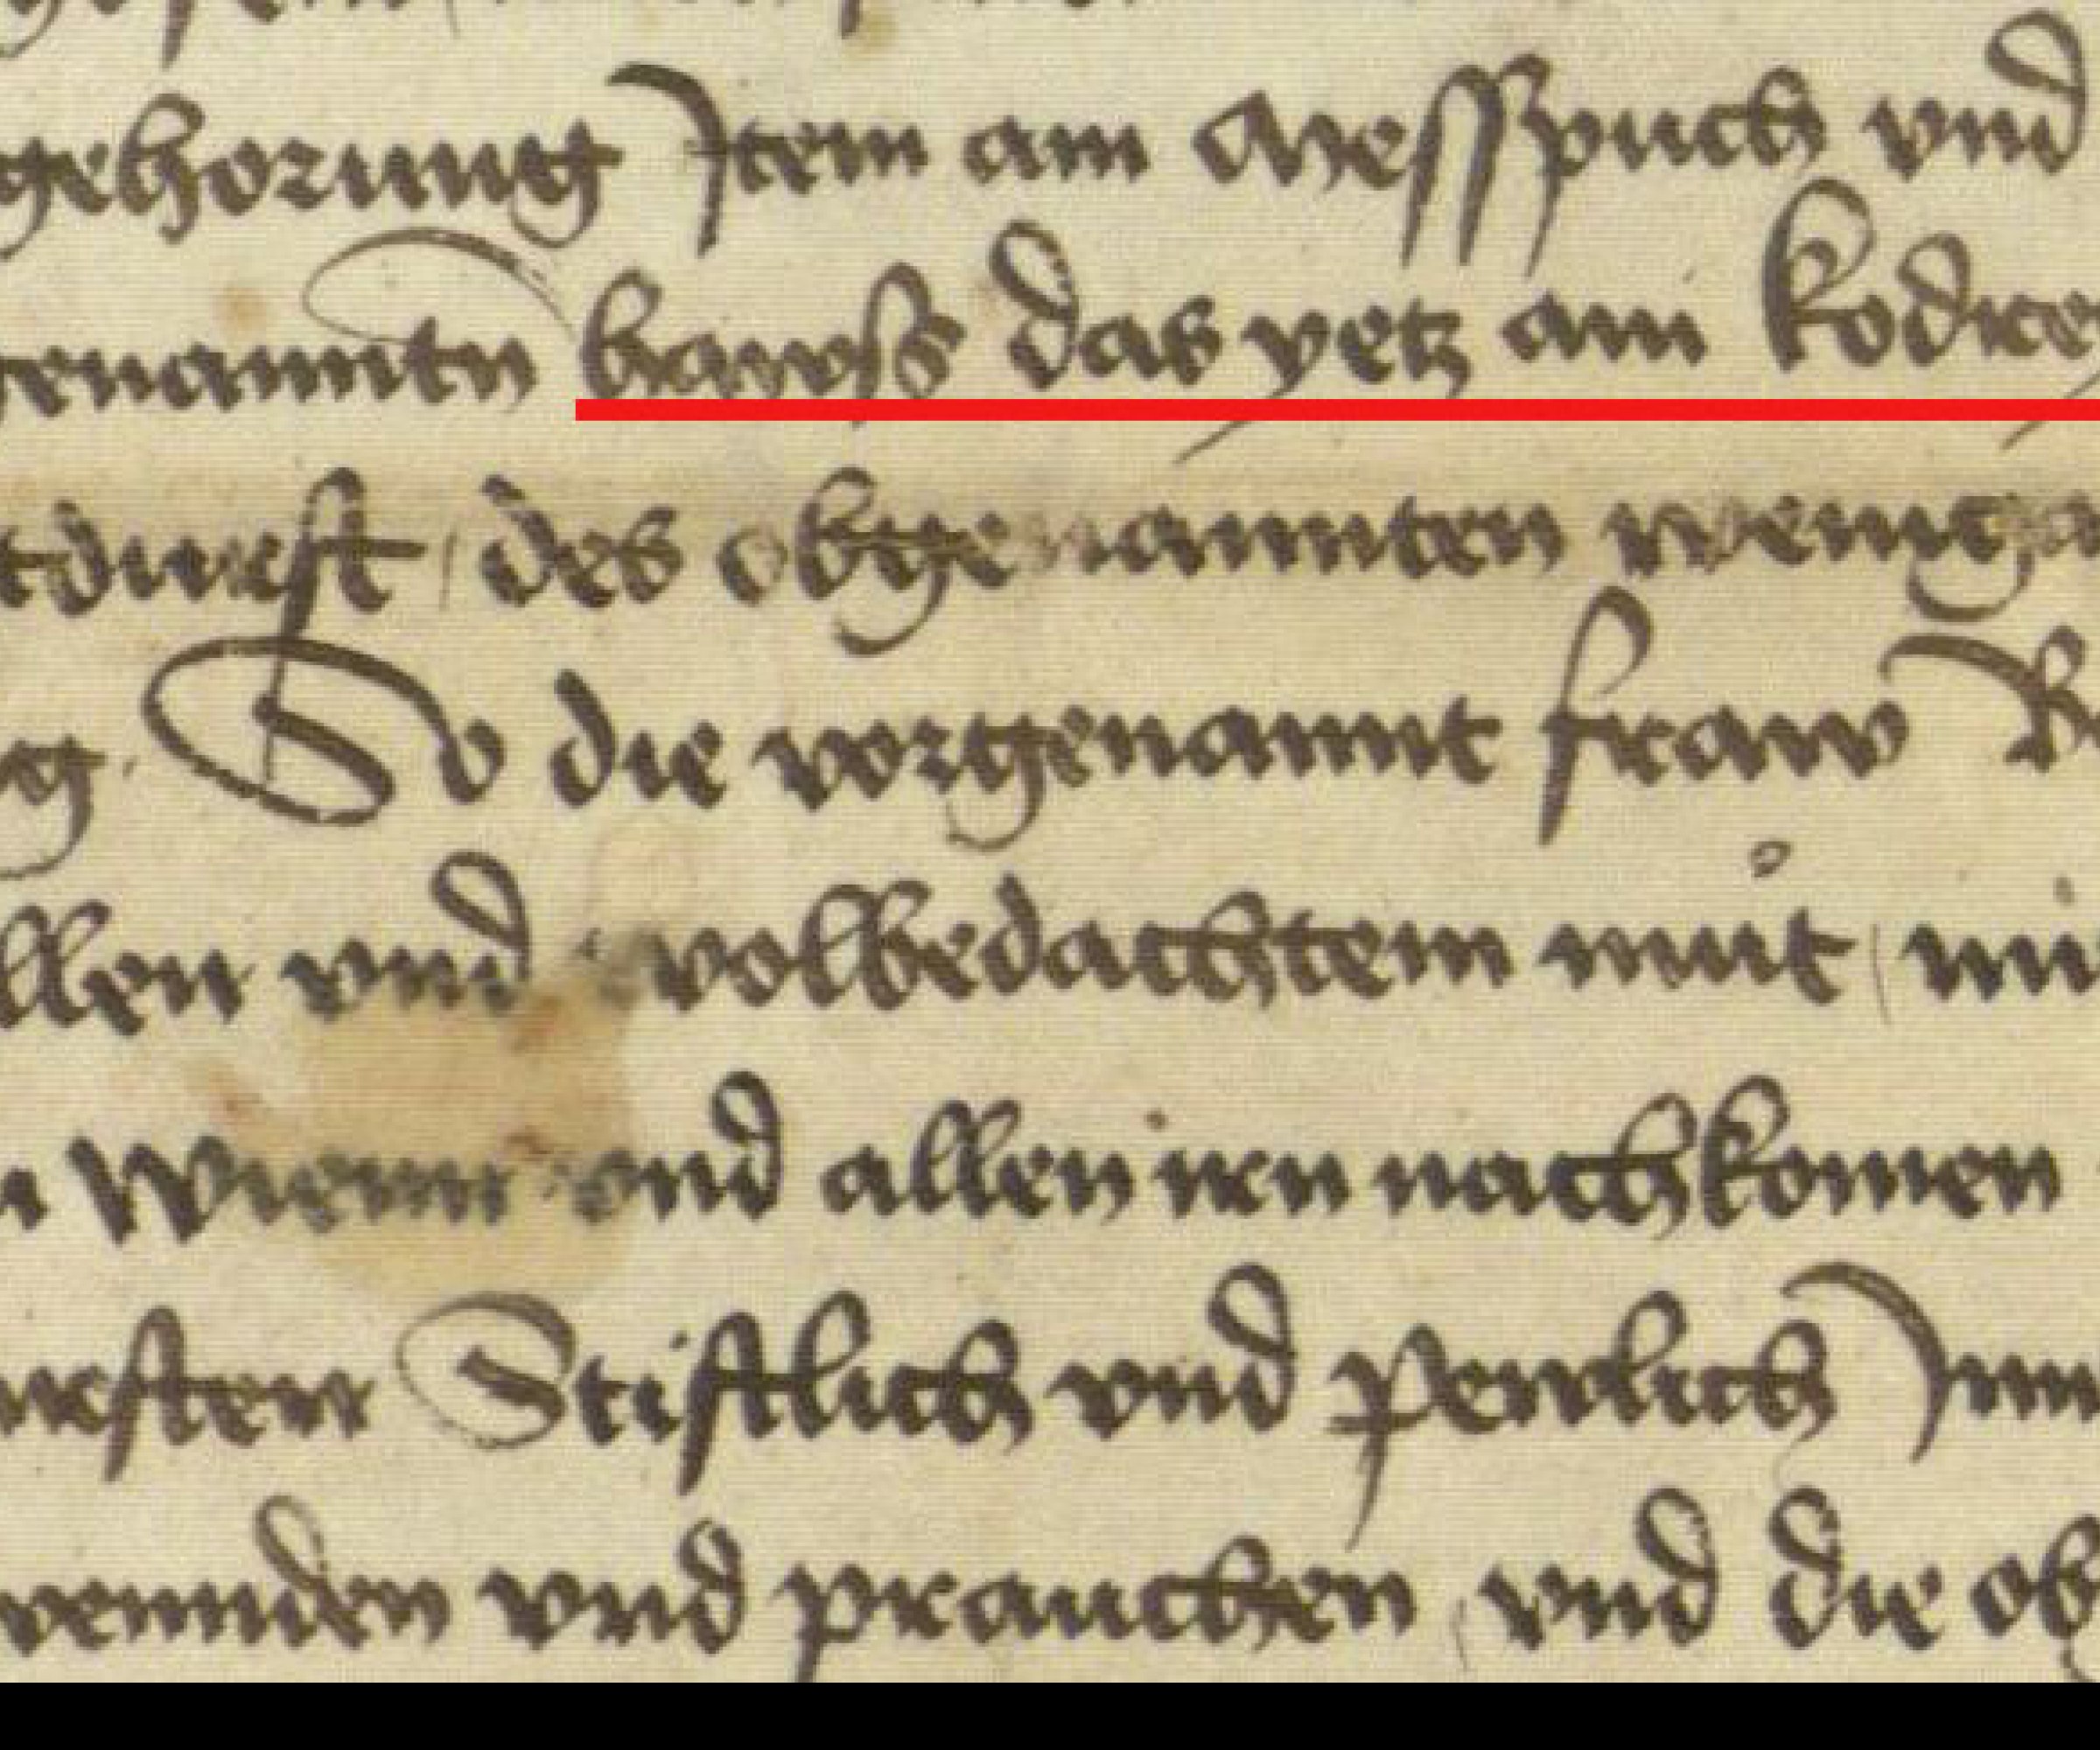 gehorung Item am Messpuch vnd
genanntn hawss das yetz ain kodrey
tdurfft / des obgenannten weinga
g. So die vorgenannt fraw
llen vnd wolbedachtem mut / mi
Wienn vnd allen iren nachkomen
ersten Stifftlich vnd pewlich Inn
wennden vnd prauchen / vnd die ob